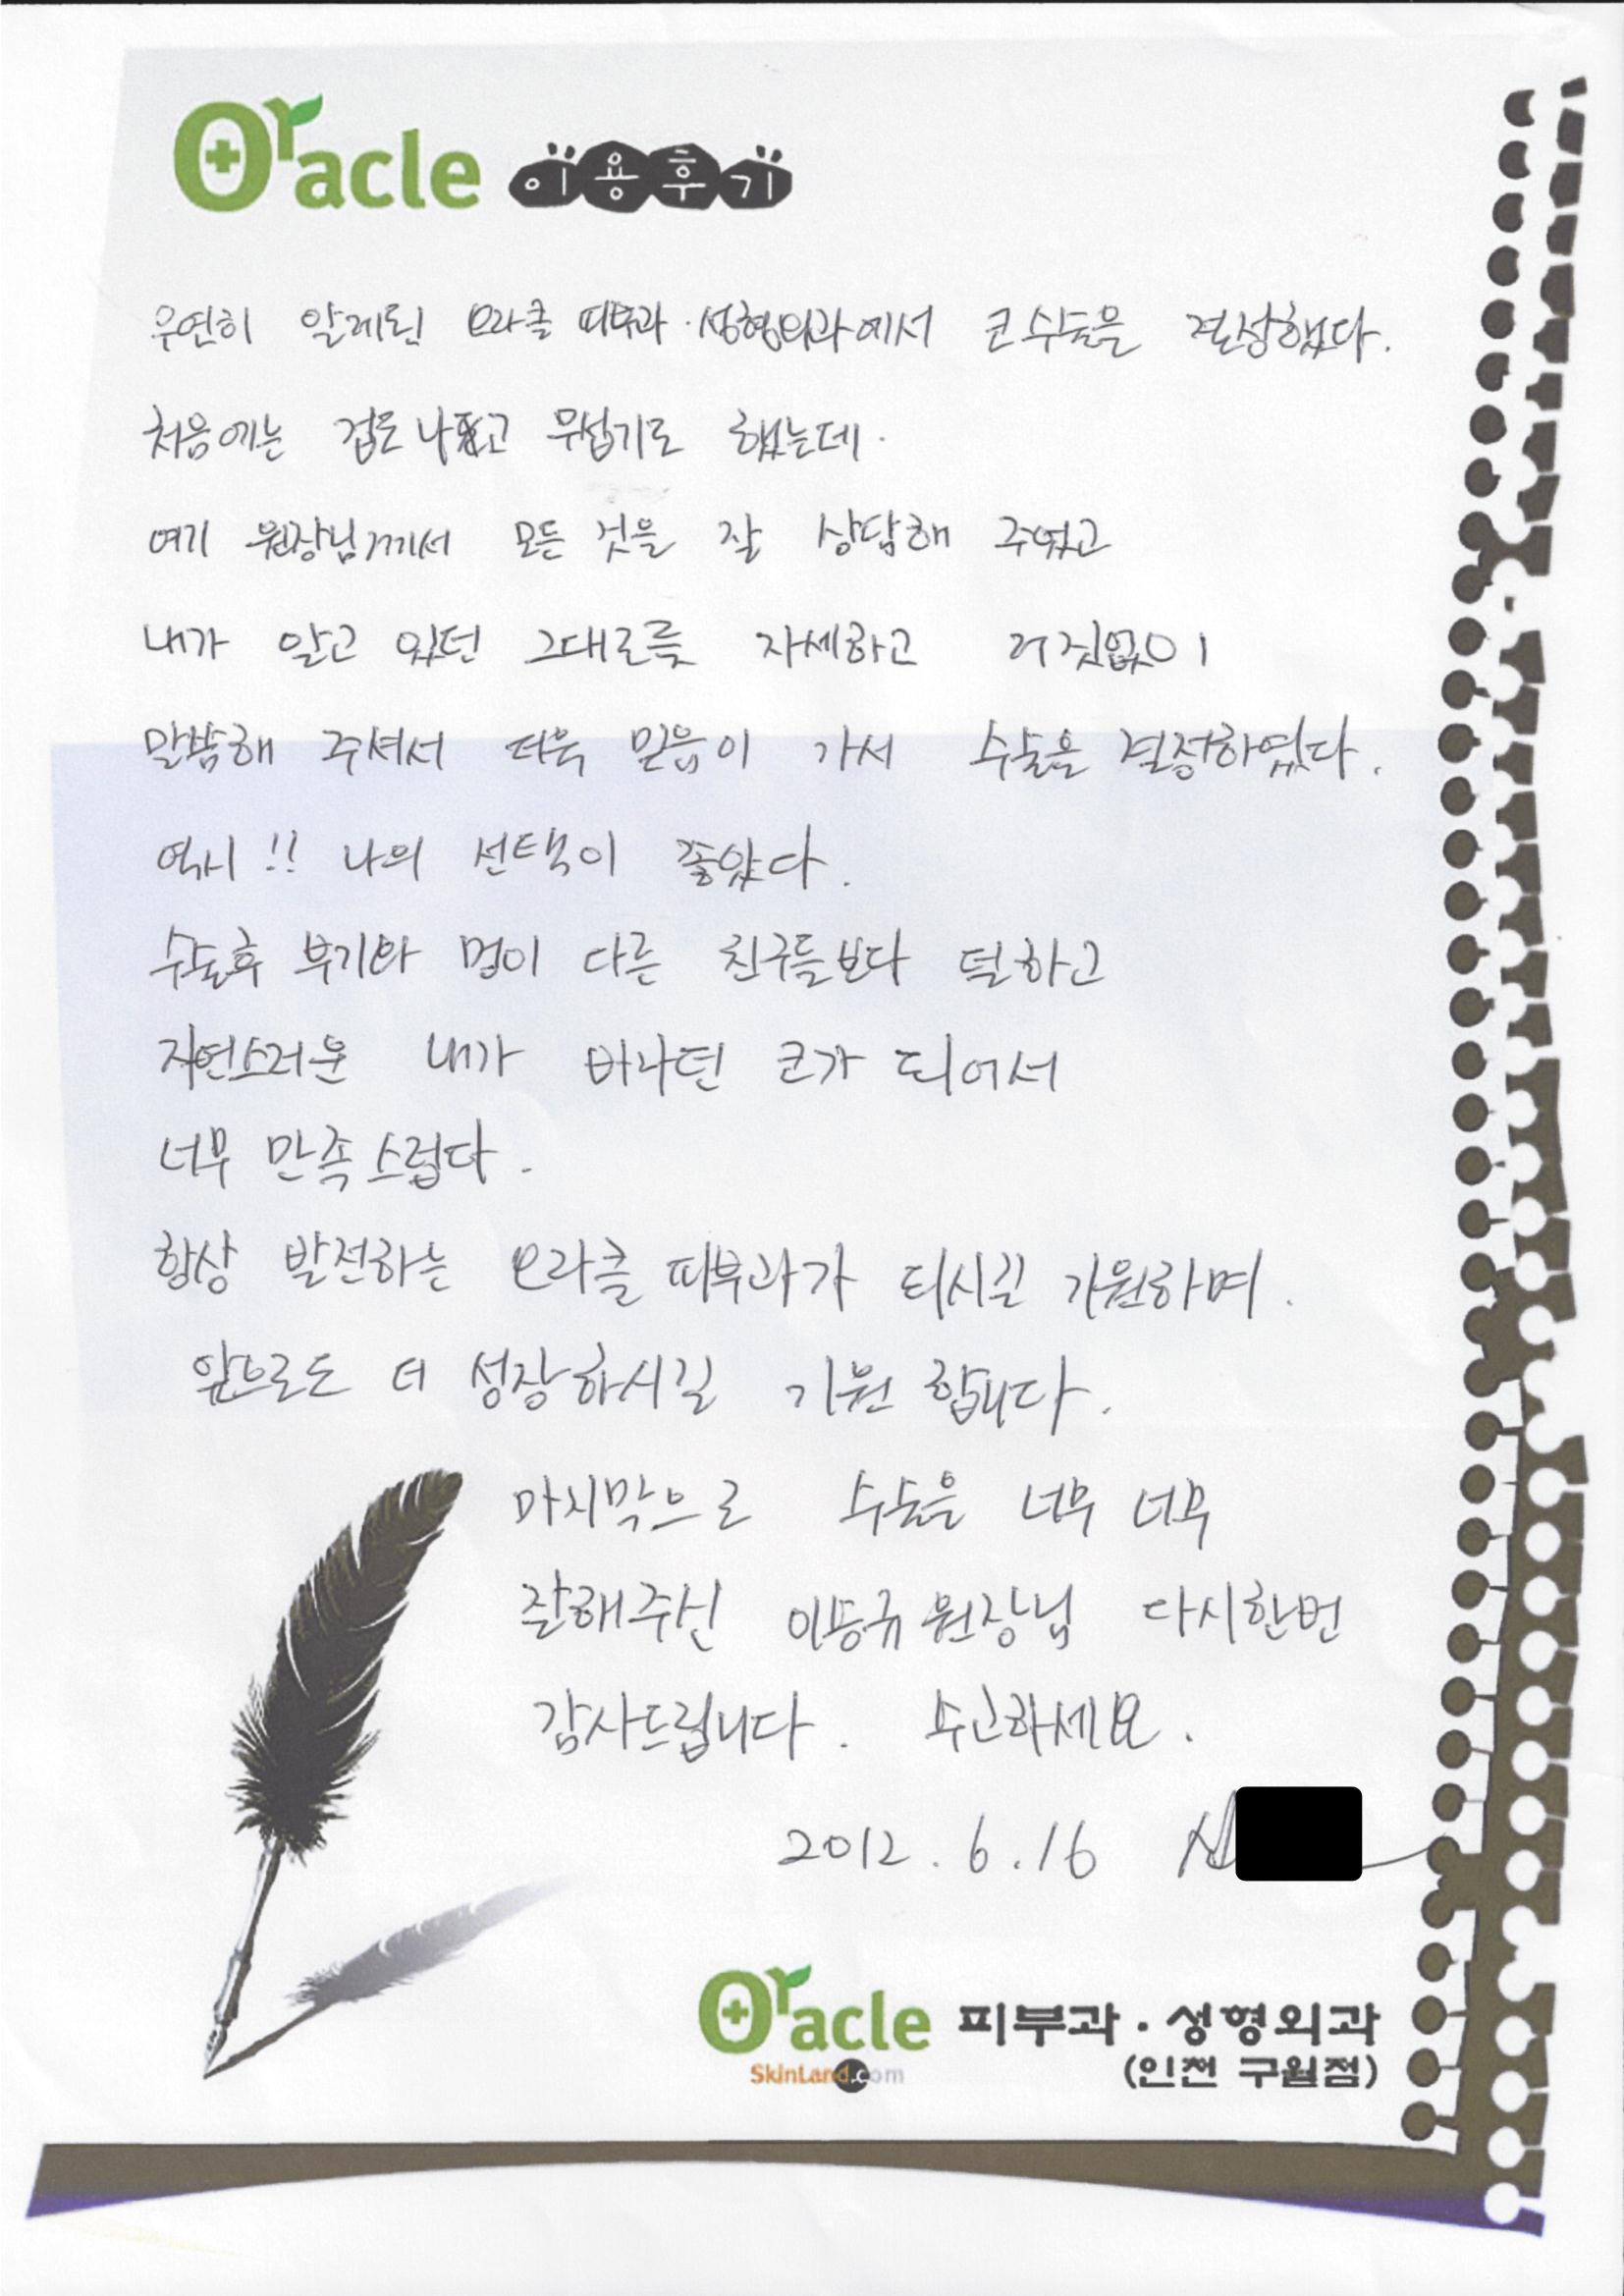 Oracle 이용후기
우연히 알게된 오라클 피부과·성형외과에서 코수술을 결심했다.
처음에는 겁도나고 무섭기도 했는데.
여기 원장님께서 모든 것을 잘 상담해 주었고
내가 알고 있던 그대로를 자세하고 거짓없이
말씀해 주셔서 더욱 믿음이 가서 수술을 결정하였다.
역시!! 나의 선택이 좋았다.
수술후 부기와 멍이 다른 친구들보다 덜하고
자연스러운 내가 바라던 코가 되어서
너무 만족스럽다.
항상 발전하는 오라클 피부과가 되시길 기원하며.
앞으로도 더 성장하시길 기원 합니다.
마지막으로 수술을 너무 너무
잘해주신 이동규 원장님 다시한번
감사드립니다. 수고하세요.
2012.6.16
Oracle 피부과·성형외과
SkinLand.com (인천 구월점)